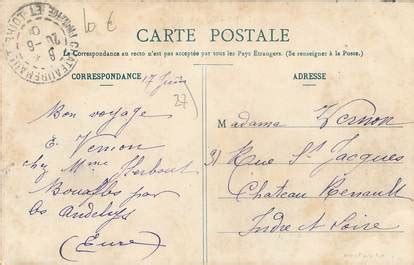 CARTE POSTALE
La Correspondance au recto n'est pas acceptée par tous les Pays Étrangers. (Se renseigner à la Poste.)
CORRESPONDANCE
ADRESSE
10 €
17 Juin
27
Bon voyage
E. Vernon
chez Mme Herbout
Bouafles par
Les Andelys
(Eure)
Madame Vernon
31 Rue St Jacques
Chateau Renault
Indre et Loire
CHATEAURENAULT
INDRE ET LOIRE